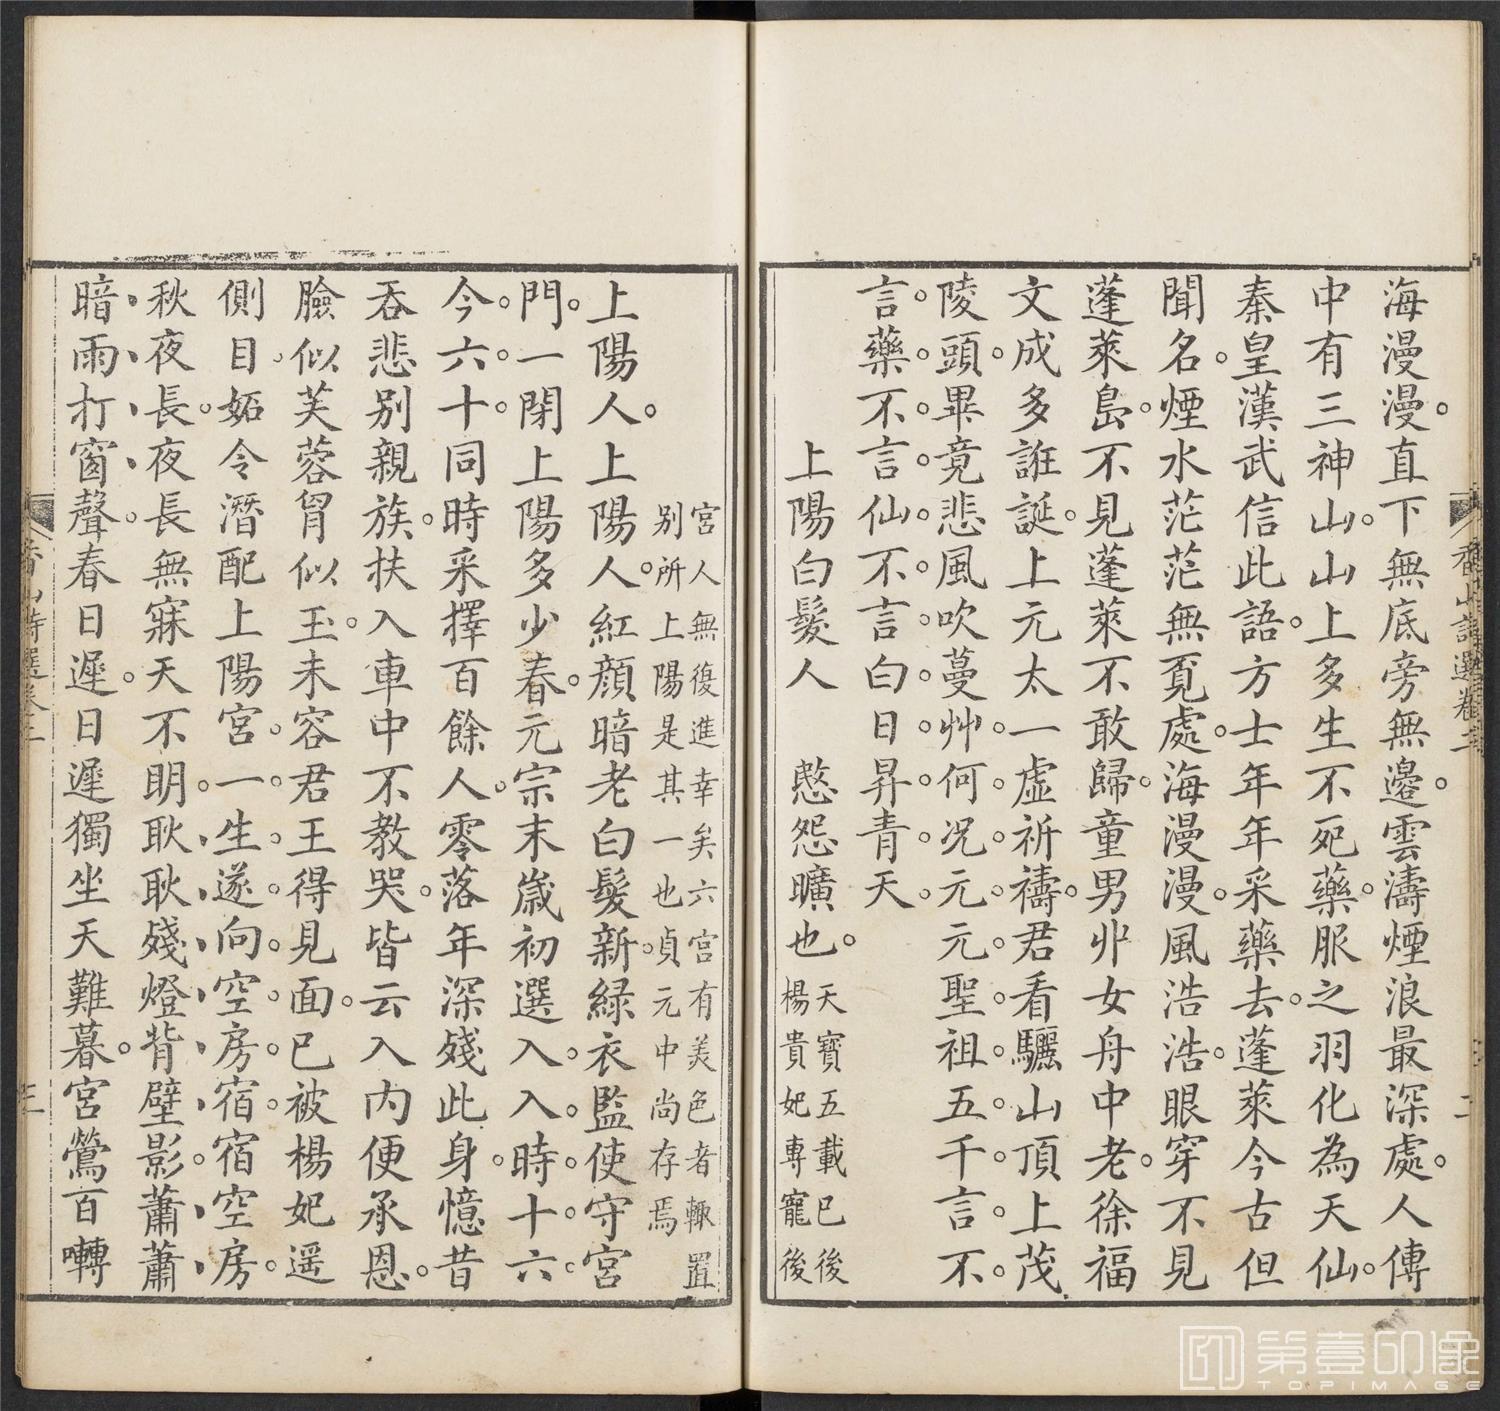 海漫漫直下無底旁無邊雲濤煙浪最深處人傳
中有三神山山上多生不死藥服之羽化為天仙
秦皇漢武信此語方士年年采藥去蓬萊今古但
聞名煙水茫茫無覔處海漫漫風浩浩眼穿不見
蓬萊島不見蓬萊不敢歸童男丱女舟中老徐福
文成多誑誕上元太一虛祈禱君看驪山頂上茂
陵頭畢竟悲風吹蔓艸何況元元聖祖五千言不
言藥不言仙不言白日昇青天
上陽白髮人　愍怨曠也
天寶五載已後
楊貴妃專寵後
宮人無復進幸矣六宮有美色者輙置
別所上陽是其一也貞元中尚存焉
上陽人上陽人紅顔暗老白髮新綠衣監使守宮
門一閉上陽多少春元宗末嵗初選入入時十六
今六十同時采擇百餘人零落年深殘此身憶昔
吞悲別親族扶入車中不教哭皆云入內便承恩
臉似芙蓉胷似玉未容君王得見面已被楊妃遥
側目妬令潛配上陽宮一生遂向空房宿宿空房
秋夜長夜長無寐天不明耿耿殘燈背壁影蕭蕭
暗雨打窗聲春日遲日遲獨坐天難暮宮鶯百囀
香山詩選卷三
二
香山詩選卷三
三
第壹印像
TOPIMAGE